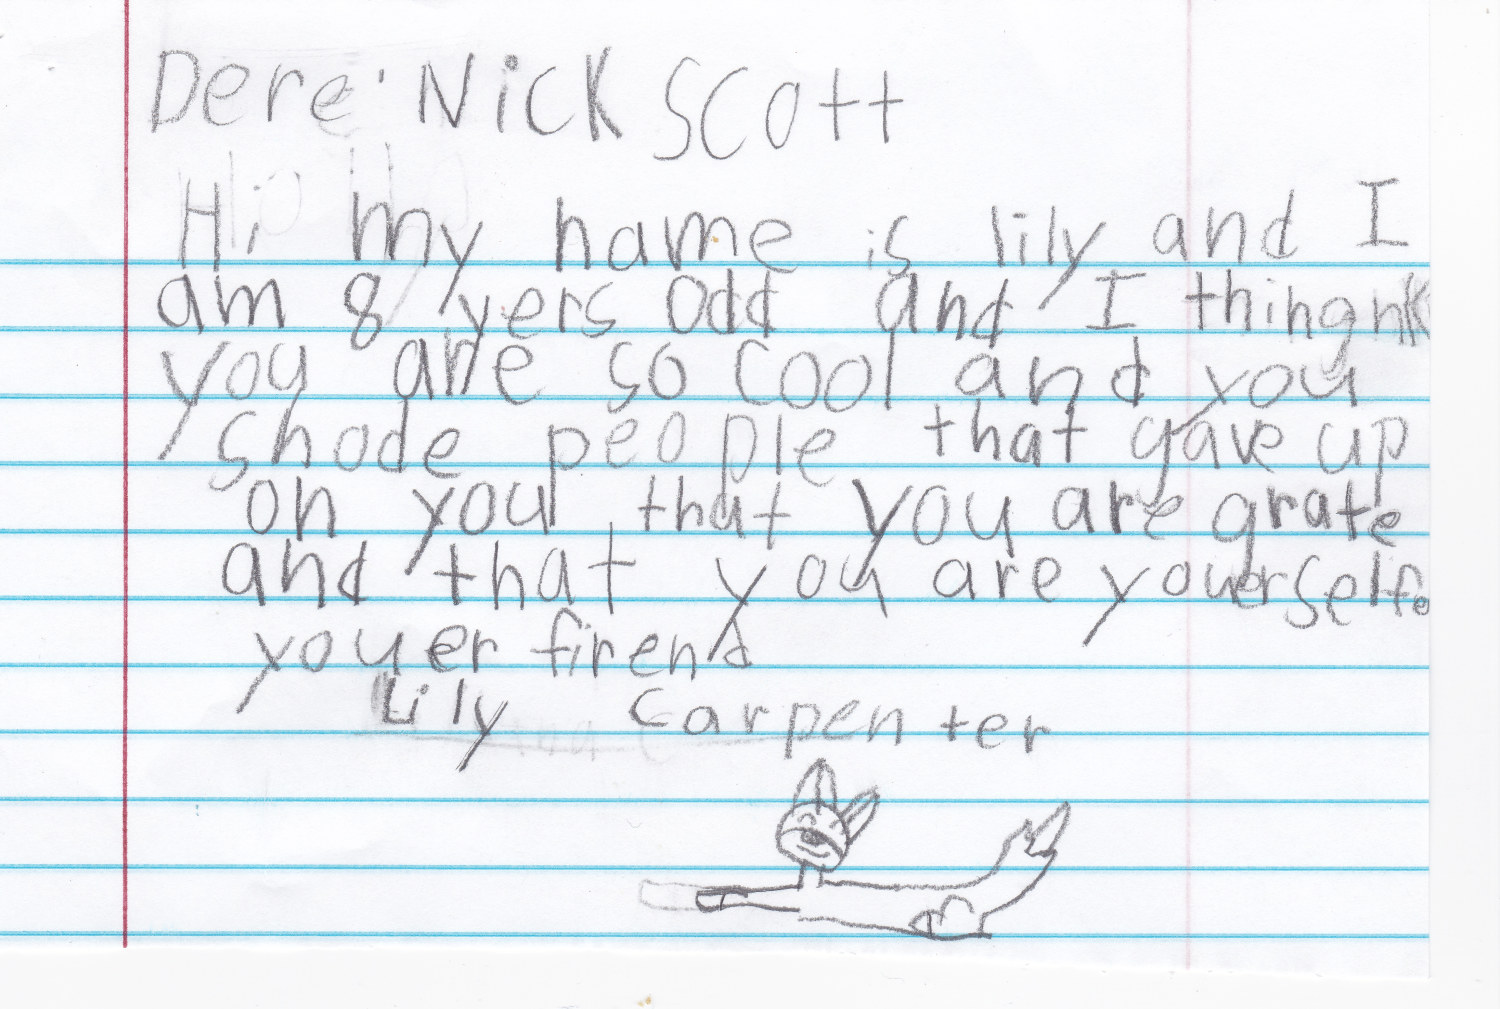 Dere Nick Scott
Hi my name is lily and I
am 8 yers odd and I thingnk
you are so cool and you
shode people that gave up
on you that you are grate
and that you are youerself.
youer firend
Lily Carpenter